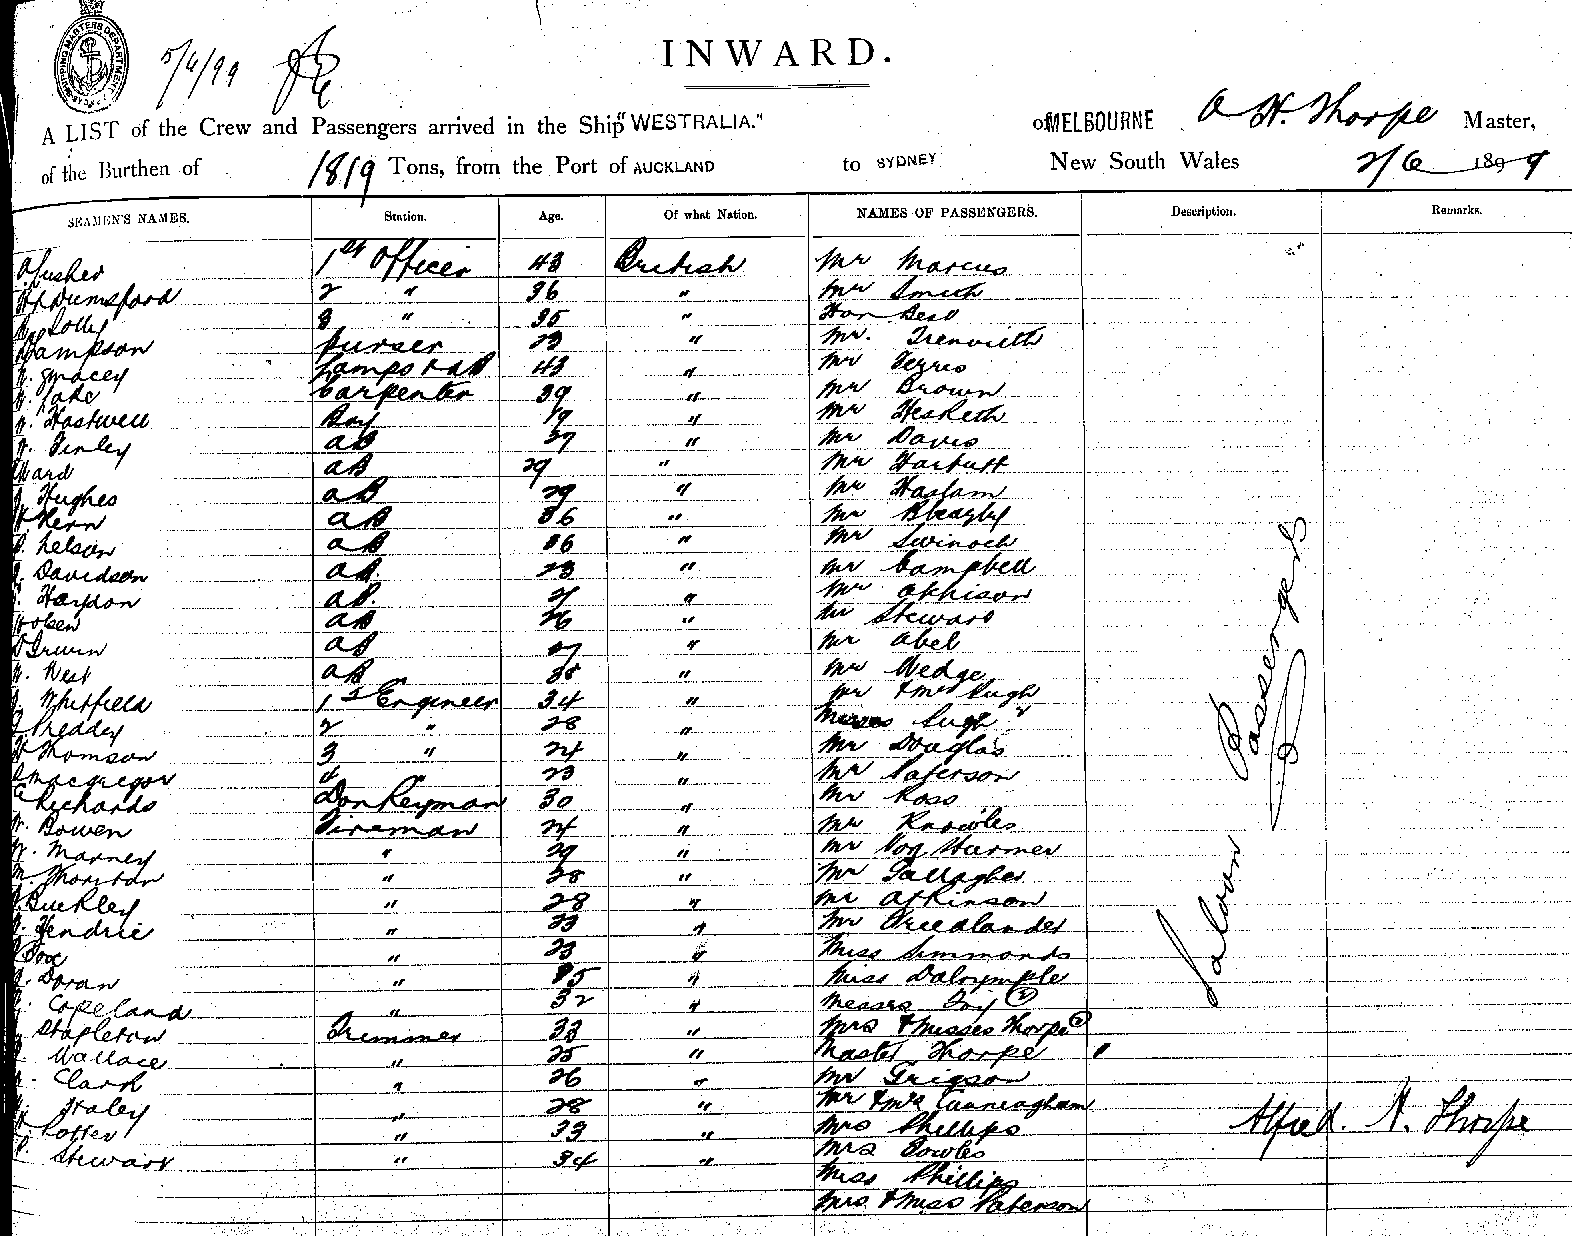 SHIPPING MASTERS DEPARTMENT
5/6/99
INWARD.
A LIST of the Crew and Passengers arrived in the Ship "WESTRALIA." of MELBOURNE A H. Thorpe Master,
of the Burthen of 1819 Tons, from the Port of AUCKLAND to SYDNEY New South Wales 2/6 1899
SEAMEN'S NAMES. Station. Age. Of what Nation. NAMES OF PASSENGERS. Description. Remarks.
1st Officer 43 British Mr Marcus
Dumsford 2 " 36 " Mr Smith
Solly 3 " 35 " Hon Bell
Sampson Purser 23 " Mr. Trenwith
Gracey Lamps & AB 43 " Mr
Jake Carpenter 39 " Mr Brown
Hastwell Boy 19 " Mr Hesketh
Finley AB 37 " Mr Davis
Ward AB 29 " Mr Harbutt
Hughes AB 29 " Mr Haslam
Kern AB 36 " Mr
Nelson AB 36 " Mr
Davidson AB. 23 " Mr Campbell
Haydon AB. " Mr
Olsen AB 26 " Mr Steward
Irwin AB " Mr Abel
West AB 38 " Mr Wedge
Whitfield 1st Engineer 34 " Mr & Mrs Pugh
Preddey 2 " 28 " Misses Pugh
Thomson 3 " 24 " Mr Douglas
Macgregor 4 " 23 " Mr Paterson
Richards Donkeyman 30 " Mr Ross
Bowen Fireman 24 " Mr Knowles
Marney " 29 " Mr Von Sturmer
Thornton " 28 " Mr Gallagher
Buckley " 28 " Mr Atkinson
Hendrie " 23 " Mr Friedlander
" 23 " Miss Simmonds
Doran " 35 " Miss Dalrymple
Copeland " 32 " Messrs
Stapleton Trimmer 33 " Mrs & Misses Thorpe
Wallace " 25 " Master Thorpe "
Clark " 26 " Mr Grigson
Haley " 28 " Mr & Mrs Cunningham
Potter " 33 " Mrs Phillips
Stewart " 34 " Mrs Bowles
Miss Phillips
Mrs & Miss Paterson
Saloon Passengers
Alfred. H. Thorpe